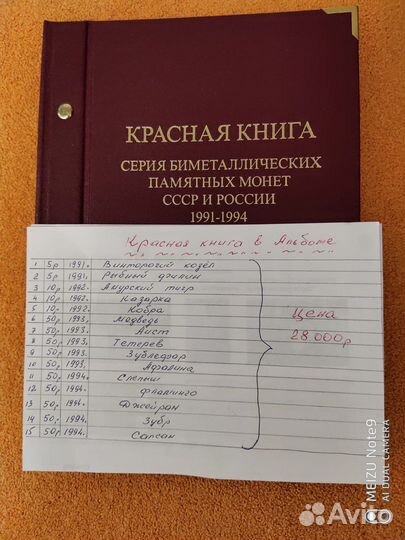 КРАСНАЯ КНИГА
СЕРИЯ БИМЕТАЛЛИЧЕСКИХ
ПАМЯТНЫХ МОНЕТ
СССР И РОССИИ
1991-1994
Красная книга в Альбоме
1 5р 1991г. Винторогий козёл
2 5р 1991г. Рыбный филин
3 10р 1992г. Амурский тигр
4 10р 1992г. Казарка
5 10р 1992г. Кобра
6 50р 1993г. Медведь
7 50р 1993г. Аист
8 50р 1993г. Тетерев
9 50р 1993г. Эублефар
10 50р 1993г. Афалина
11 50р 1994г. Слепыш
12 50р 1994г. Фламинго
13 50р 1994г. Джейран
14 50р 1994г. Зубр
15 50р 1994г. Сапсан
Цена
28000р
MEIZU Note9
AI DUAL CAMERA
Avito